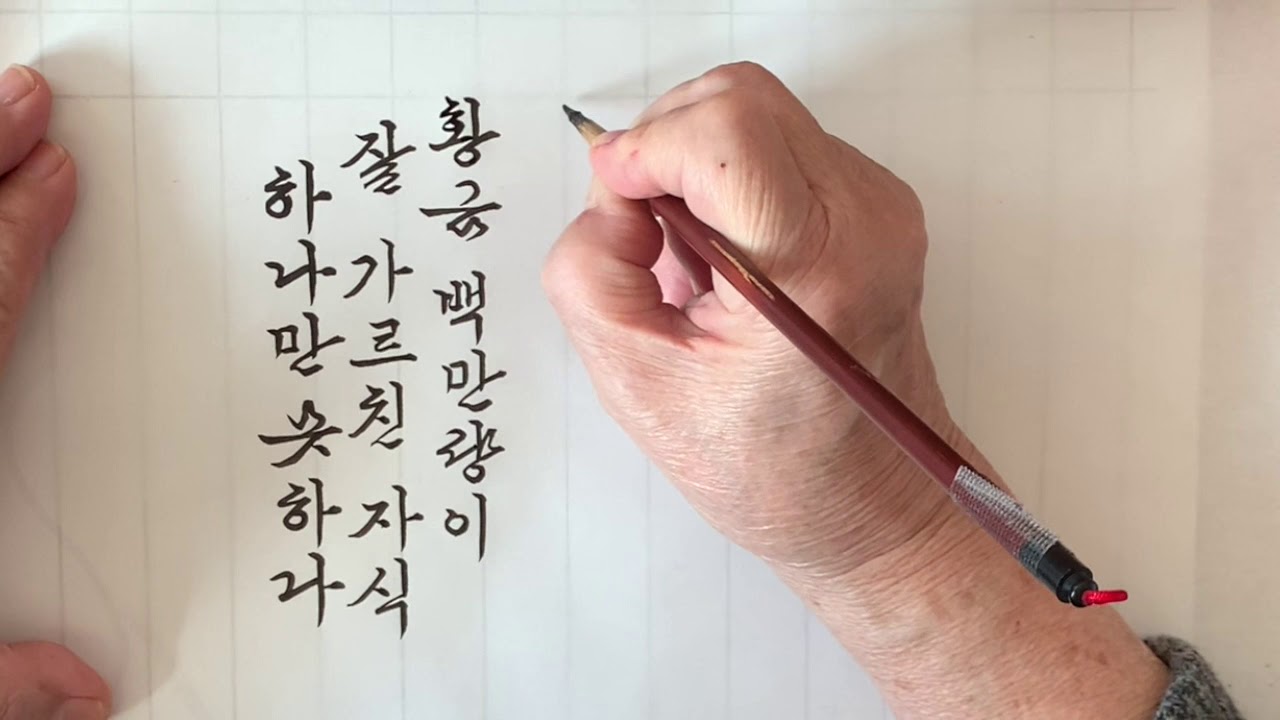 황금 백만량이
잘 가르친 자식
하나만 못하다